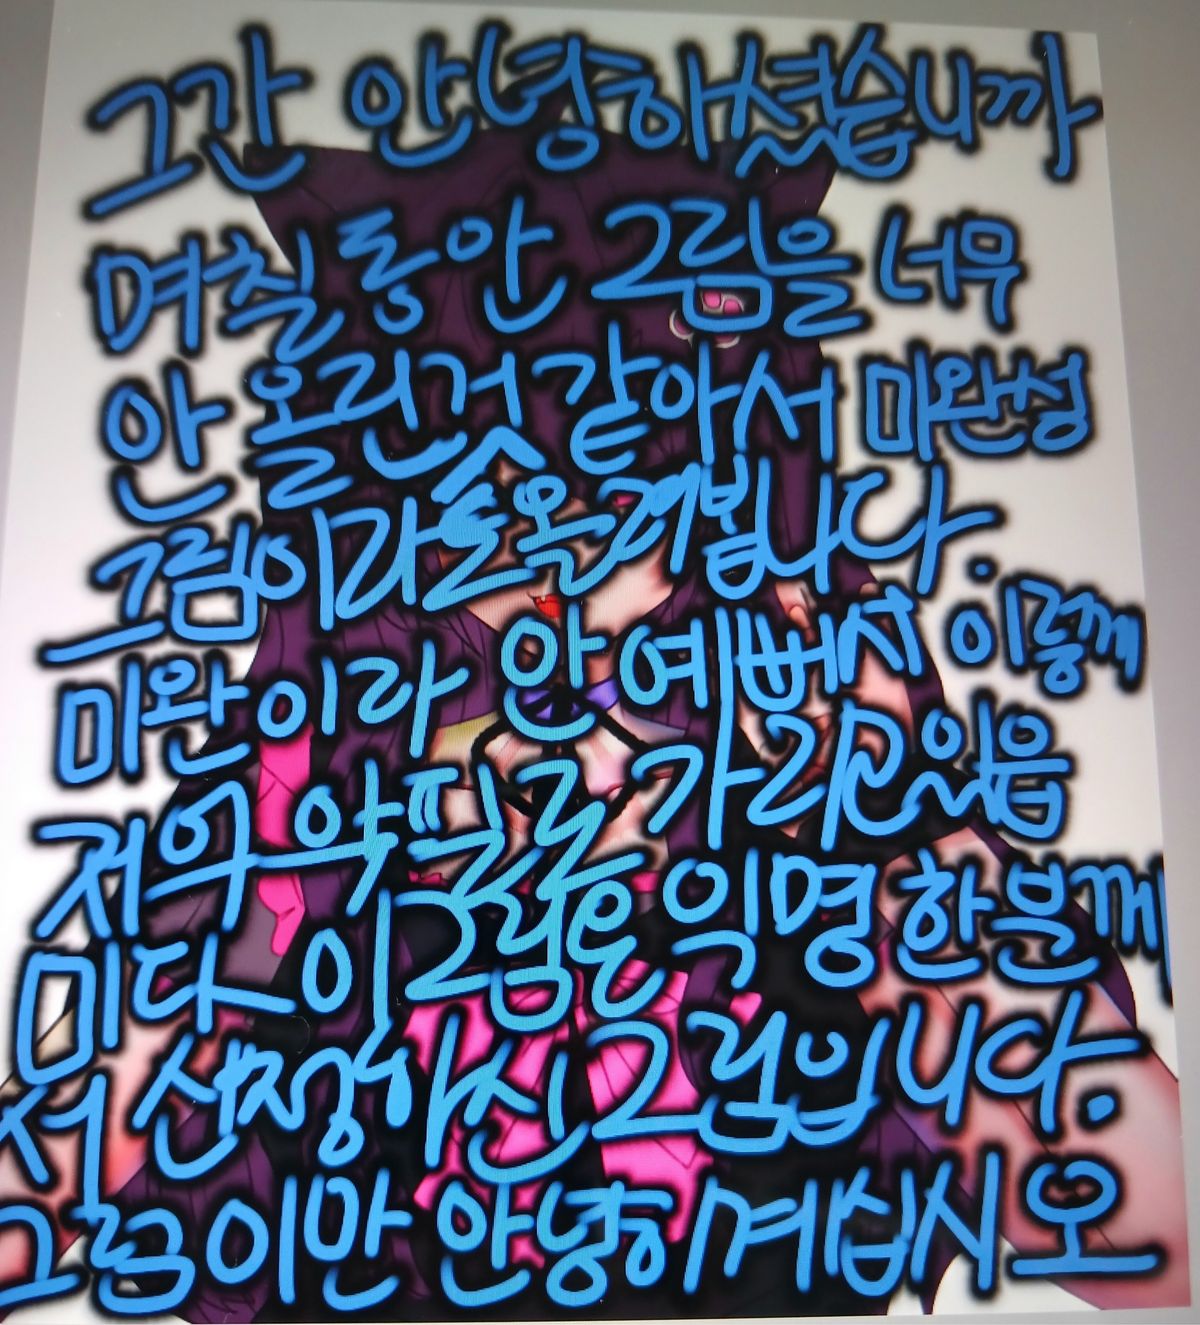 그간 안녕하셨습니까
며칠동안 그림을 너무
안 올린것 같아서 미완성
그림이라도 올려봅니다.
미완이라 안 예뻐서 이렇게
저의 악필로 가리고 있음
미다 이 그림은 익명 한분께
서 신청하신 그림입니다.
그럼 이만 안녕히 계십시오